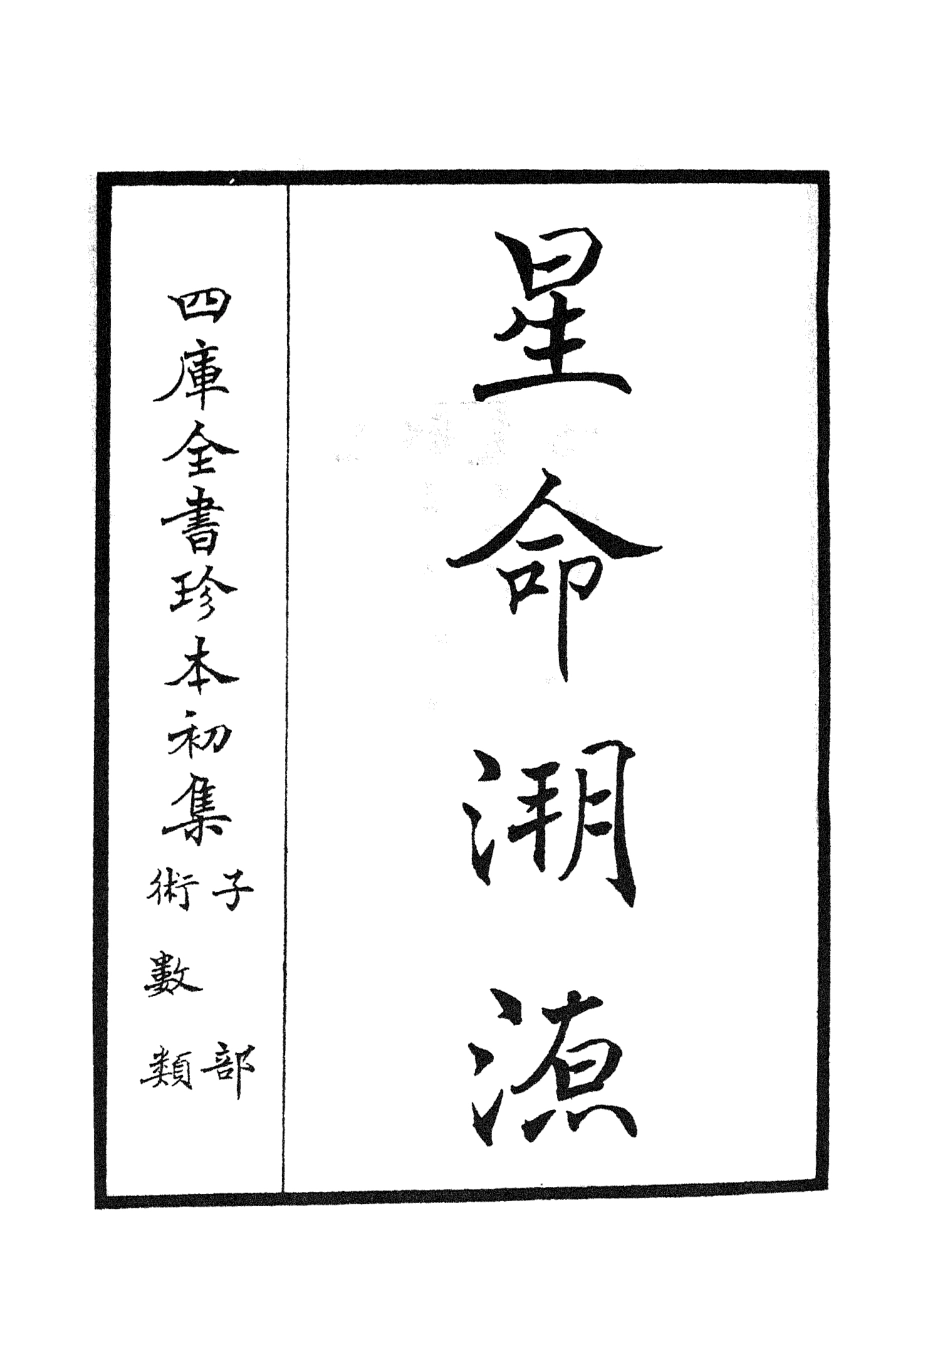 星命溯源
四庫全書珍本初集
子部
術數類